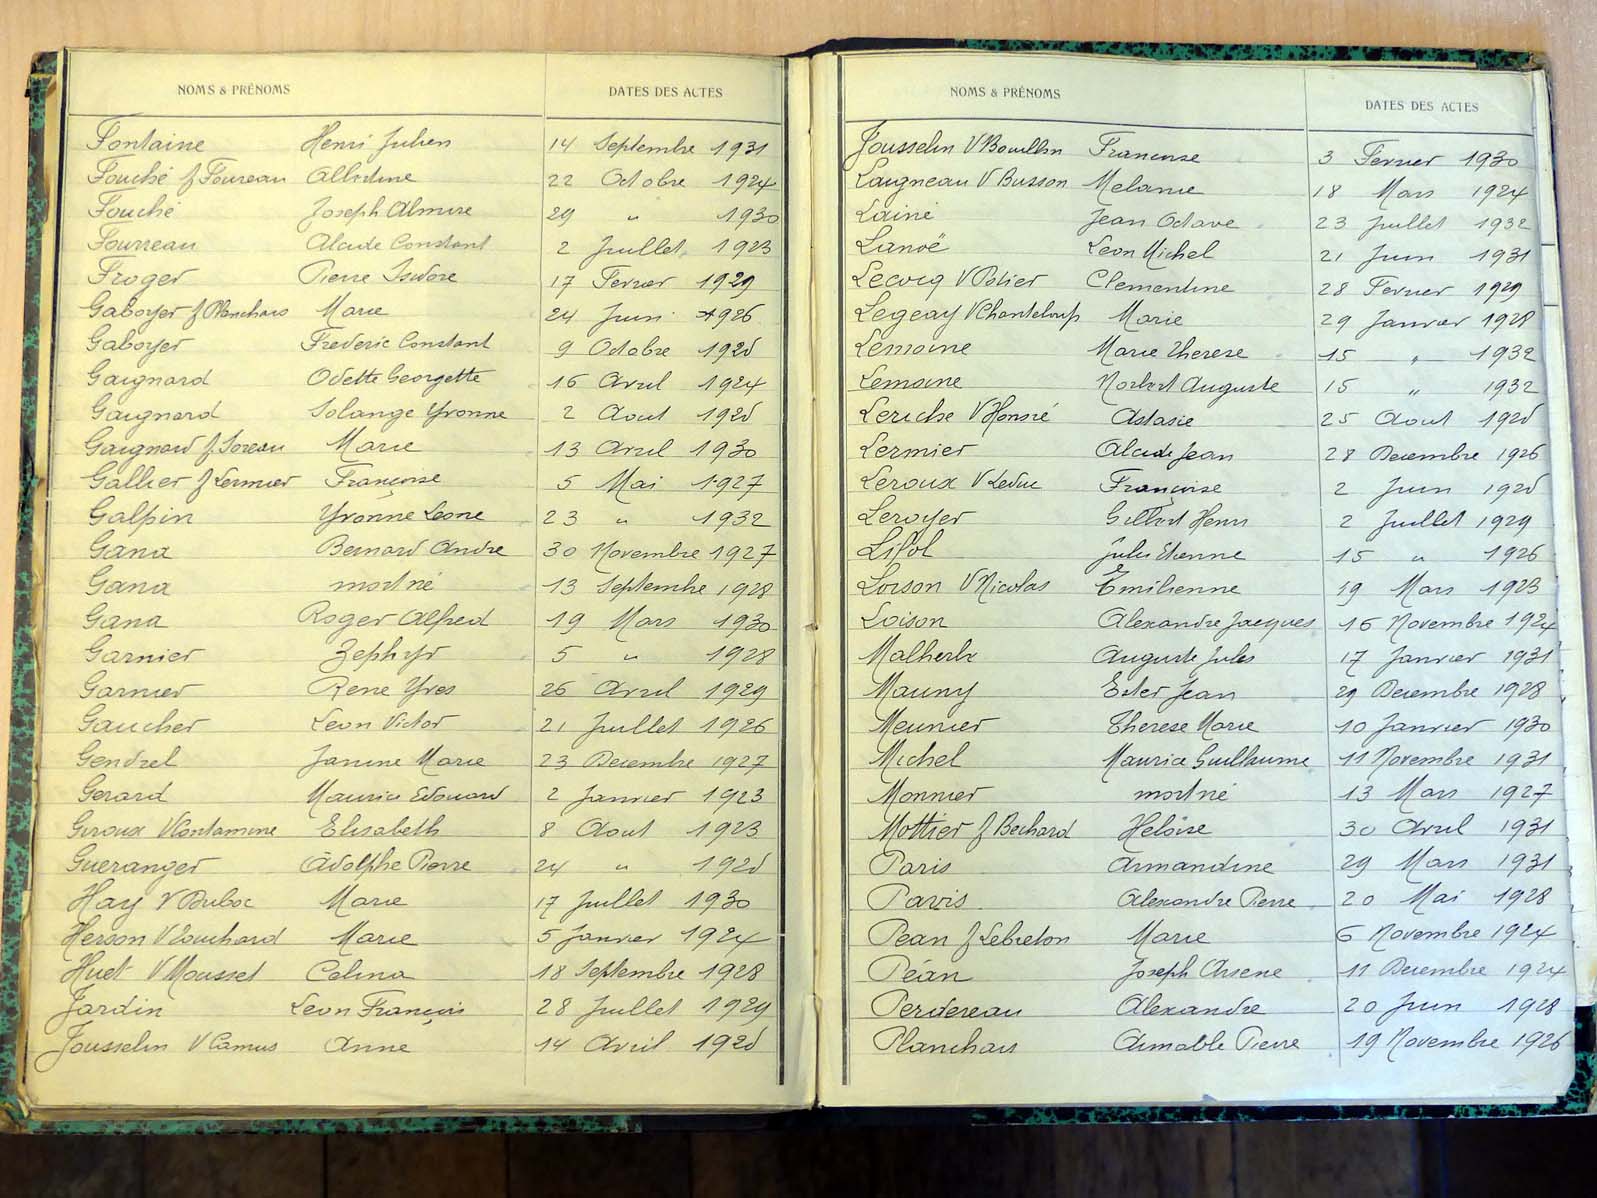 NOMS & PRÉNOMS DATES DES ACTES
Fontaine Henri Julien 14 Septembre 1931
Fouché f Foureau Albertine 22 Octobre 1924
Fouché Joseph Almire 29 " 1930
Fourreau Alcide Constant 2 Juillet 1923
Froger Pierre Isidore 17 Fevrier 1929
Gaboyer f Planchais Marie 24 Juin 1926
Gaboyer Frederic Constant 9 Octobre 1925
Gaignard Odette Georgette 16 Avril 1924
Gaignard Solange Yvonne 2 Aout 1925
Gaignard f. Soreau Marie 13 Avril 1930
Gallier f Lermier Françoise 5 Mai 1927
Galpin Yvonne Leone 23 " 1932
Gana Bernard Andre 30 Novembre 1927
Gana mort né 13 Septembre 1928
Gana Roger Alfred 19 Mars 1930
Garnier Zephyr 5 " 1928
Garnier Rene Yves 26 Avril 1929
Gaucher Leon Victor 21 Juillet 1926
Gendrel Janine Marie 23 Decembre 1927
Gerard Maurice Edouard 2 Janvier 1923
Giroux V Contamine Elisabeth 8 Aout 1923
Gueranger Adolphe Pierre 24 " 1925
Hay V Duboc Marie 17 Juillet 1930
Herson V Louchard Marie 5 Janvier 1924
Huet V Mousset Celina 18 Septembre 1928
Jardin Leon François 28 Juillet 1929
Jousselin V Camus Anne 14 Avril 1925
NOMS & PRÉNOMS DATES DES ACTES
Jousselin V Bouillon Francoise 3 Fevrier 1930
Laigneau V Busson Melanie 18 Mars 1924
Lainé Jean Octave 23 Juillet 1932
Lanoë Leon Michel 21 Juin 1931
Lecocq V Potier Clementine 28 Fevrier 1929
Legeay V Chanteloup Marie 29 Janvier 1928
Lemoine Marie Therese 15 " 1932
Lemoine Norbert Auguste 15 " 1932
Leriche V Honoré Astasie 25 Aout 1925
Lermier Alcide Jean 28 Decembre 1926
Leroux V Leduc Françoise 2 Juin 1925
Leroyer Gilbert Henri 2 Juillet 1929
Jules Etienne 15 " 1926
Loison V Nicolas Emilienne 19 Mars 1923
Loison Alexandre Jacques 16 Novembre 1924
Malherbe Auguste Jules 17 Janvier 1931
Mauny Ester Jean 29 Decembre 1928
Meunier Therese Marie 10 Janvier 1930
Michel Maurice Guillaume 11 Novembre 1931
Monnier mort né 13 Mars 1927
Mottier f Bechard Heloïse 30 Avril 1931
Paris Armandine 29 Mars 1931
Paris Alexandre Pierre 20 Mai 1928
Pean f Lebreton Marie 6 Novembre 1924
Péan Joseph Arsene 11 Decembre 1924
Perdereau Alexandre 20 Juin 1928
Planchais Aimable Pierre 19 Novembre 1926